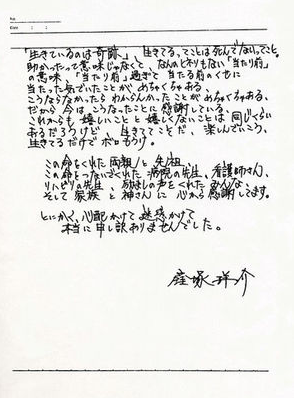 「生きているのは奇跡」生きてる、ってことは死んでないってこと。
助かったって意味じゃなくて、なんのヒネリもない「当たり前」
の意味、「当たり前」過ぎて当たる前のくせに
当たった気でいたことがめちゃくちゃある。
こうならなかったらわからんかったことがめちゃくちゃある、
だから今はこうなったことに感謝している。
これからも嬉しいことと嬉しくないことは同じくらい
あるだろうけど、生きててことだ、楽しんでいこう、
生きてるだけでボロもうけ。
この命をくれた両親と先祖、
この命をつないでくれた病院の先生、看護師さん、
リハビリの先生、励ましの声をくれたみんな、
そして家族と神さんに心から感謝してます。
とにかく、心配かけて迷惑かけて
本当に申し訳ありませんでした。
窪塚洋介